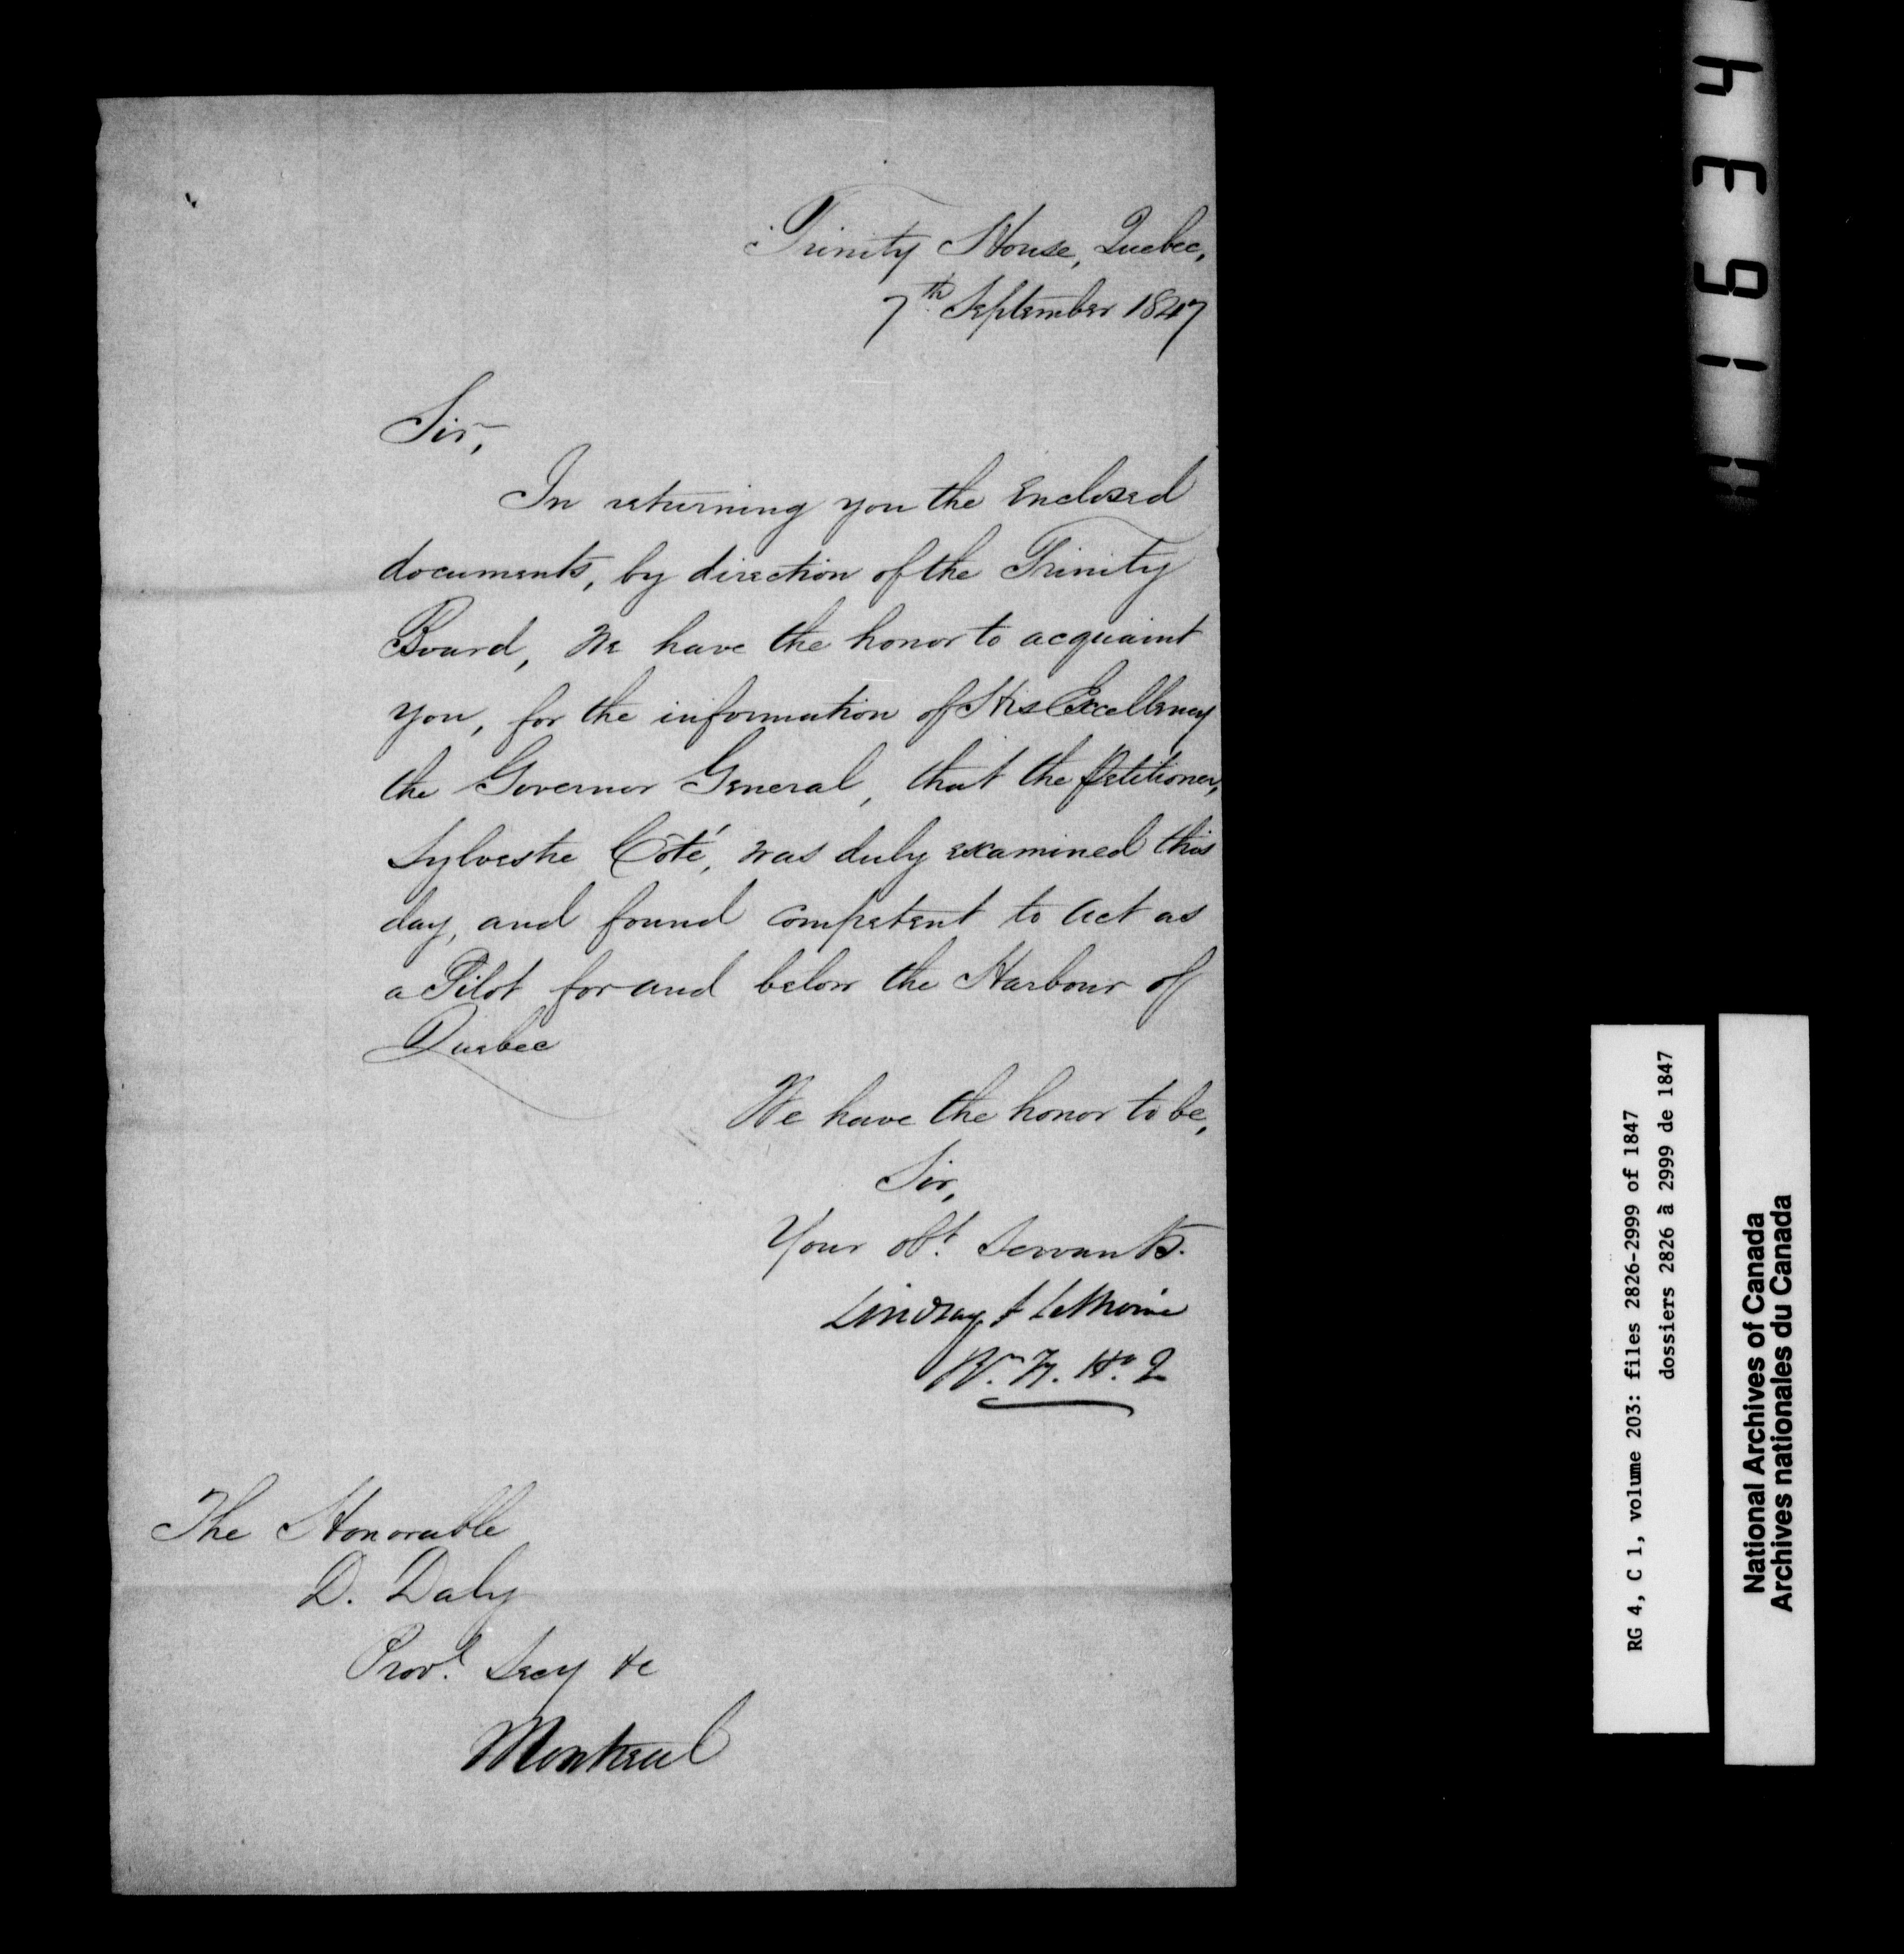 Trinity House, Quebec,
7th September 1847
Sir,
In returning you the Enclosed
documents, by direction of the Trinity
Board, We have the honor to acquaint
you, for the information of His Excellency
the Governor General, that the Petitioner,
Sylvestre Côté, was duly examined this
day, and found Competent to Act as
a Pilot for and below the Harbour of
Quebec
We have the honor to be,
Sir,
Your obt. Servants.
Lindsay & LeMoine
The Honorable
D. Daly
Provl. Secy &c
Montreal
RG 4, C 1, volume 203: files 2826-2999 of 1847
dossiers 2826 à 2999 de 1847
National Archives of Canada
Archives nationales du Canada